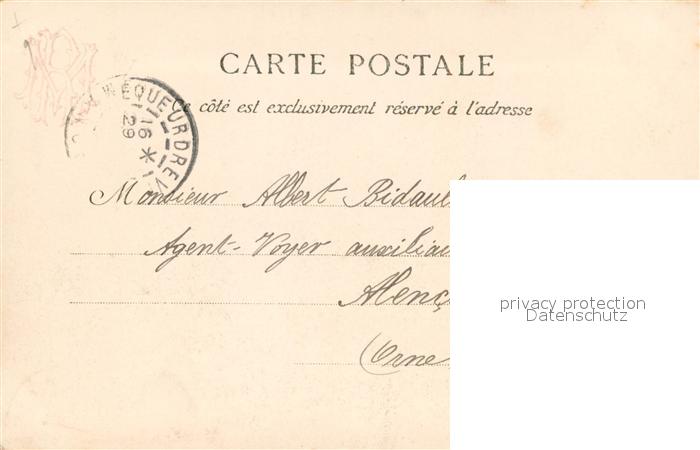 CARTE POSTALE
Ce côté est exclusivement réservé à l'adresse
EQUEURDREV
16
29
Monsieur Albert Bidaul
Agent-Voyer auxiliai
Alenç
(Orne
privacy protection
Datenschutz